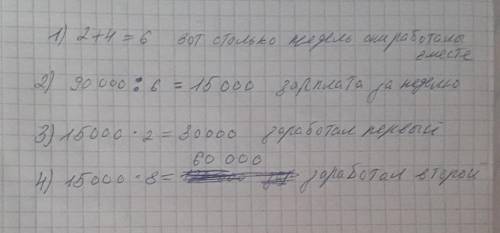 1) 2+4=6 вот столько недель они работали
вместе
2) 90 000 : 6 = 15 000 зарплата за неделю
3) 15000 · 2 = 30000 заработал первый
60 000
4) 15000 · 8 = заработал второй